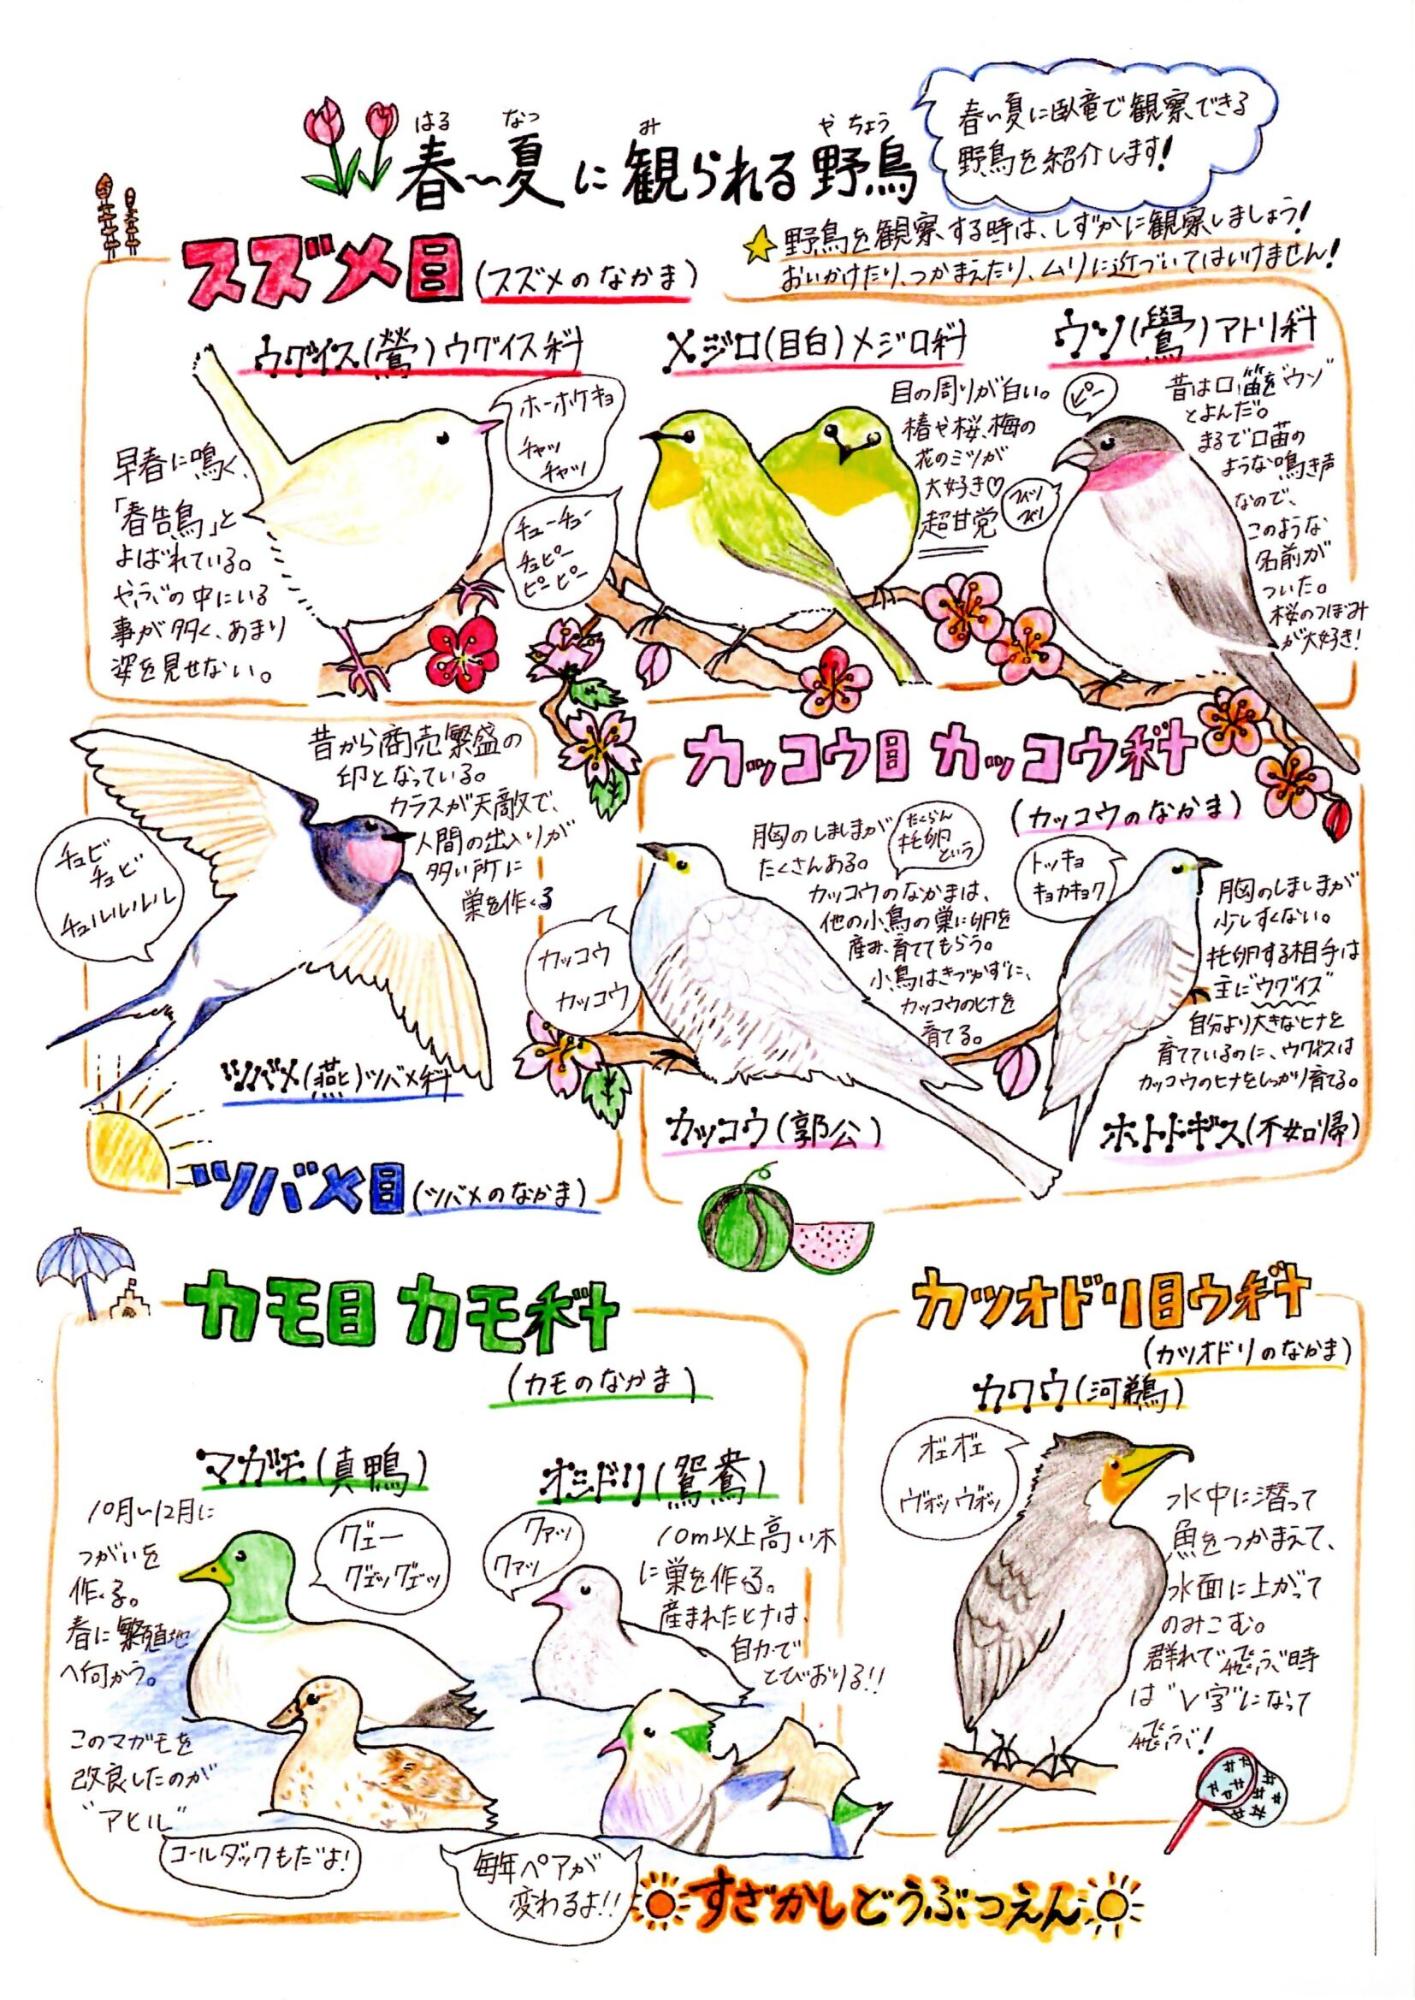 はる なつ み やちょう
春〜夏に観られる野鳥
春〜夏に臥竜で観察できる
野鳥を紹介します!
野鳥を観察する時は、しずかに観察しましょう!
おいかけたり、つかまえたり、ムリに近づいてはいけません!
スズメ目(スズメのなかま)
ウグイス(鶯)ウグイス科
早春に鳴く、
「春告鳥」と
よばれている。
やぶの中にいる
事が多く、あまり
姿を見せない。
ホーホケキョ
チャッ
チャッ
チューチュー
チュピー
ピーピー
メジロ(目白)メジロ科
目の周りが白い。
椿や桜、梅の
花のミツが
大好き♡
超甘党
ウソ(鷽)アトリ科
ピー
昔は口笛を"ウソ"
とよんだ。
まるで口笛の
ような鳴き声
なので、
このような
名前が
ついた。
桜のつぼみ
が大好き!
昔から商売繁盛の
印となっている。
カラスが天敵で、
人間の出入りが
多い所に
巣を作る
チュビ
チュビ
チュルルルル
ツバメ(燕)ツバメ科
ツバメ目(ツバメのなかま)
カッコウ目 カッコウ科
(カッコウのなかま)
胸のしましまが
たくさんある。
たくらん
托卵
という
カッコウのなかまは、
他の小鳥の巣に卵を
産み、育ててもらう。
小鳥はきづかずに、
カッコウのヒナを
育てる。
カッコウ
カッコウ
カッコウ(郭公)
トッキョ
キョカキョク
胸のしましまが
少しすくない。
托卵する相手は
主に"ウグイス"
自分より大きなヒナを
育てているのに、ウグイスは
カッコウのヒナをしっかり育てる。
ホトトギス(不如帰)
カモ目 カモ科
(カモのなかま)
マガモ(真鴨)
10月〜12月に
つがいを
作る。
春に繁殖地
へ向かう。
グェー
グェッグェッ
このマガモを
改良したのが
"アヒル"
コールダックもだよ!
オシドリ(鴛鴦)
クァッ
クァッ
10m以上高い木
に巣を作る。
産まれたヒナは、
自力で
とびおりる!!
毎年ペアが
変わるよ!!
カツオドリ目ウ科
(カツオドリのなかま)
カワウ(河鵜)
ヴォッヴォッ
水中に潜って
魚をつかまえて、
水面に上がって
のみこむ。
群れで飛ぶ時
は"V字"になって
飛ぶ!
すざかしどうぶつえん